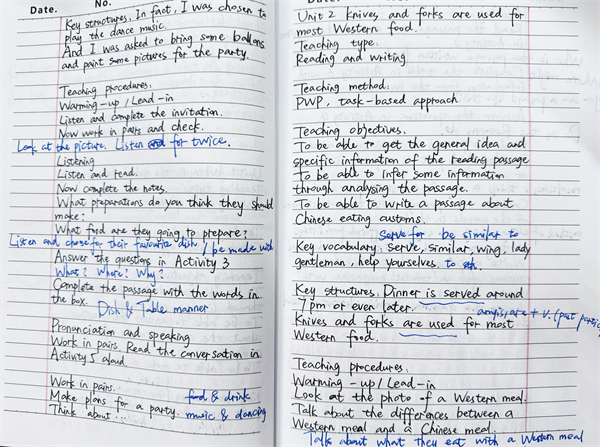 Date. No.
Key structures. In fact, I was chosen to
play the dance music.
And I was asked to bring some ballons
and paint some pictures for the party.
Teaching procedures:
Warming-up / Lead-in
Listen and complete the invitation.
Now work in pairs and check.
Look at the picture. Listen and for twice.
Listening
Listen and read.
Now complete the notes.
What preparations do you think they should
make?
What food are they going to prepare?
Listen and chose for their favourite dish / be made with
Answer the questions in Activity 3
What? Where? Why?
Complete the passage with the words in
the box.
Dish & Table manner
Pronunciation and speaking
Work in pairs. Read the conversation in
Activity 5 aloud.
Work in pairs.
Make plans for a party. food & drink
Think about... music & dancing
Date. No.
Unit 2 knives and forks are used for
most Western food.
Teaching type.
Reading and writing
Teaching method:
PWP, task-based approach
Teaching objectives.
To be able to get the general idea and
specific information of the reading passage
To be able to infer some information
through analysing the passage.
To be able to write a passage about
Chinese eating customs.
Serve for be similar to
Key vocabulary: serve, similar, wing, lady
gentleman, help yourselves. to sth.
Key structures. Dinner is served around
7pm or even later. am/is/are + v. (past partic
Knives and forks are used for most
Western food.
Teaching procedures:
Warming-up / Lead-in
Look at the photo of a Western meal.
Talk about the differences between a
Western meal and a Chinese meal.
Talk about what they eat with a Western meal